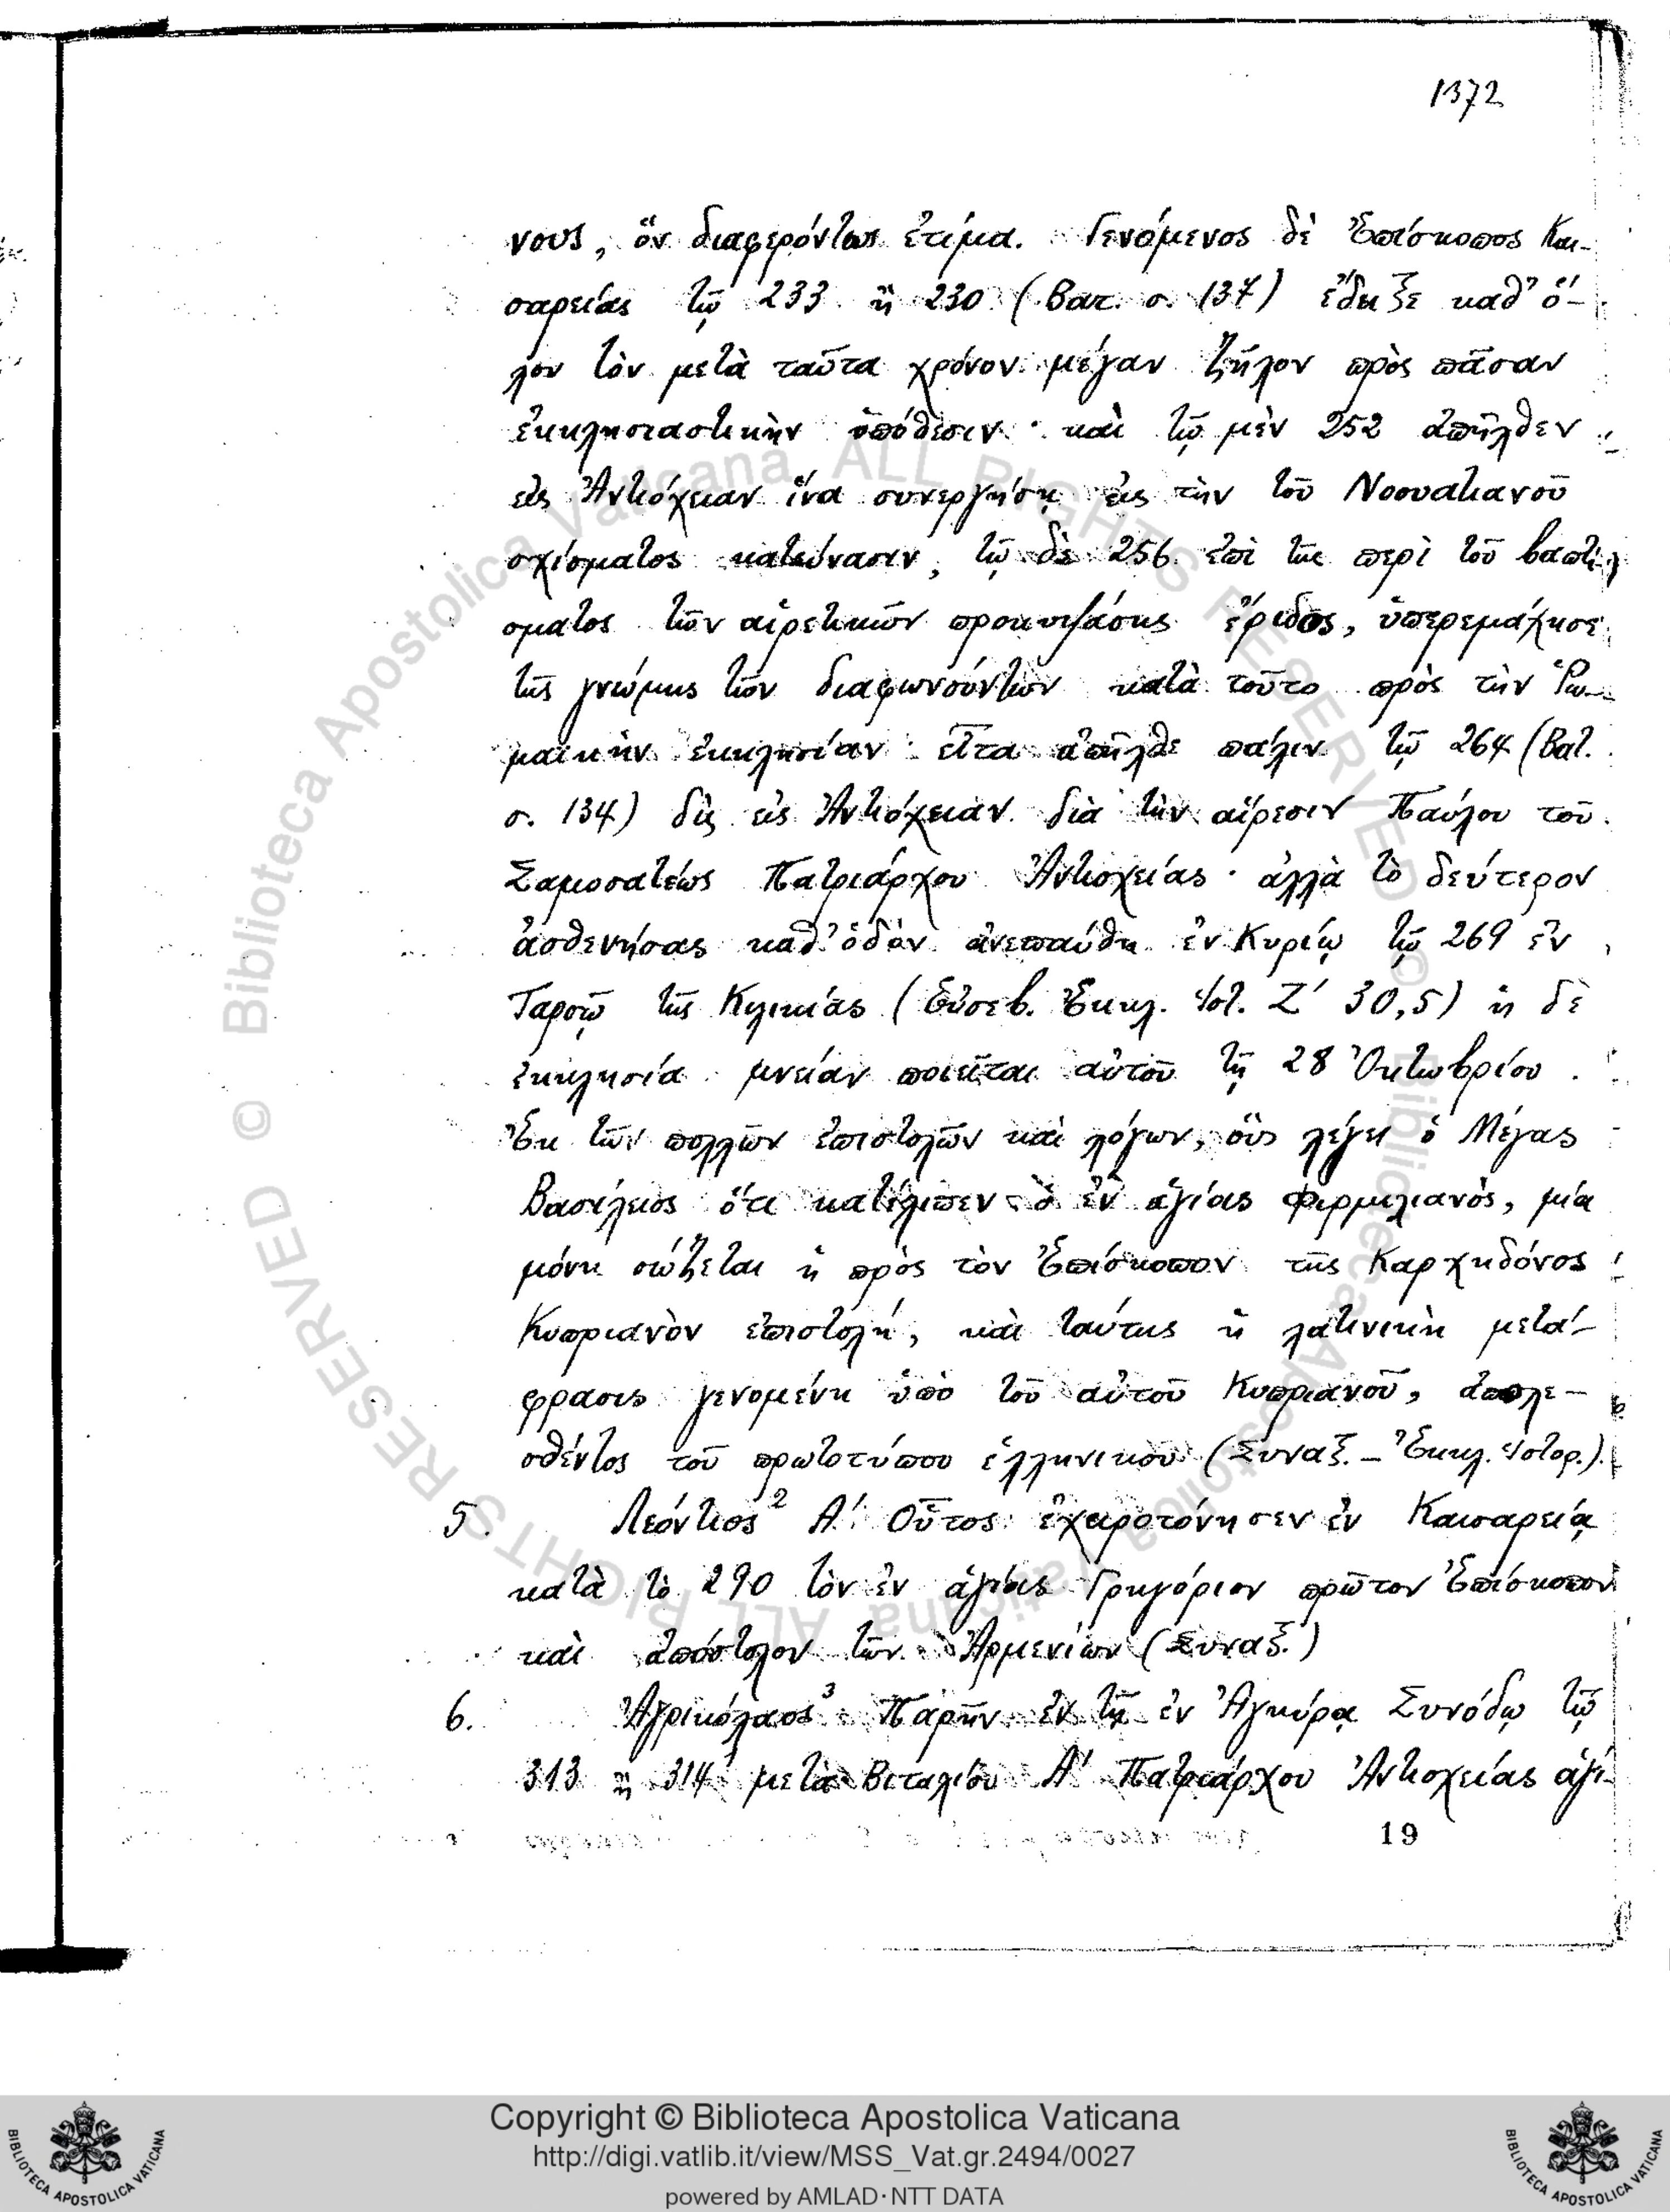 1372
νους, ὃν διαφερόντως ἐτίμα. Γενόμενος δὲ Ἐπίσκοπος Και-
σαρείας τῷ 233 ἢ 230 (Βατ. σ. 137) ἔδειξε καθ' ὅ-
λον τὸν μετὰ ταῦτα χρόνον μέγαν ζῆλον πρὸς πᾶσαν
ἐκκλησιαστικὴν ὑπόθεσιν· καὶ τῷ μὲν 252 ἀπῆλθεν
εἰς Ἀντιόχειαν ἵνα συνεργήσῃ εἰς τὴν τοῦ Νοουατιανοῦ
σχίσματος κατεύνασιν, τῷ δὲ 256 ἐπὶ τῆς περὶ τοῦ βαπτί-
σματος τῶν αἱρετικῶν προκυψάσης ἔριδος, ὑπερεμάχησε
τῆς γνώμης τῶν διαφωνούντων κατὰ τοῦτο πρὸς τὴν Ῥω-
μαικὴν ἐκκλησίαν· εἶτα ἀπῆλθε πάλιν τῷ 264 (Βατ.
σ. 134) δὶς εἰς Ἀντιόχειαν διὰ τὴν αἵρεσιν Παύλου τοῦ
Σαμοσατέως Πατριάρχου Ἀντιοχείας· ἀλλὰ τὸ δεύτερον
ἀσθενήσας καθ' ὁδὸν ἀνεπαύθη ἐν Κυρίῳ τῷ 269 ἐν
Ταρσῷ τῆς Κιλικίας (Εὐσεβ. Ἐκκλ. Ἱστ. Ζ' 30,5) ἡ δὲ
ἐκκλησία μνείαν ποιεῖται αὐτοῦ τῇ 28 Ὀκτωβρίου.
Ἐκ τῶν πολλῶν ἐπιστολῶν καὶ λόγων, οὓς λέγει ὁ Μέγας
Βασίλειος ὅτι κατέλιπεν ὁ ἐν ἁγίοις Φιρμιλιανὸς, μία
μόνη σώζεται ἡ πρὸς τὸν Ἐπίσκοπον τῆς Καρχηδόνος
Κυπριανὸν ἐπιστολή, καὶ ταύτης ἡ λατινικὴ μετά-
φρασις γενομένη ὑπὸ τοῦ αὐτοῦ Κυπριανοῦ, ἀπολε-
σθέντος τοῦ πρωτοτύπου ἑλληνικοῦ (Συναξ. - Ἐκκλ. Ἱστορ.).
5. Λεόντιος² Α'. Οὗτος ἐχειροτόνησεν ἐν Καισαρείᾳ
κατὰ τὸ 290 τὸν ἐν ἁγίοις Γρηγόριον πρῶτον Ἐπίσκοπον
καὶ ἀπόστολον τῶν Ἀρμενίων (Συναξ.)
6. Ἀγρικόλαος³ Παρῆν ἐν τῇ ἐν Ἀγκύρᾳ Συνόδῳ τῷ
313 ἢ 314 μετὰ Βιταλίου Α' Πατριάρχου Ἀντιοχείας ἁγί-
19
© Biblioteca Apostolica Vaticana ALL RIGHTS RESERVED © Biblioteca Apostolica Vaticana ALL RIGHTS RESERVED
Copyright © Biblioteca Apostolica Vaticana
http://digi.vatlib.it/view/MSS_Vat.gr.2494/0027
powered by AMLAD·NTT DATA
BIBLIOTECA APOSTOLICA VATICANA
BIBLIOTECA APOSTOLICA VATICANA